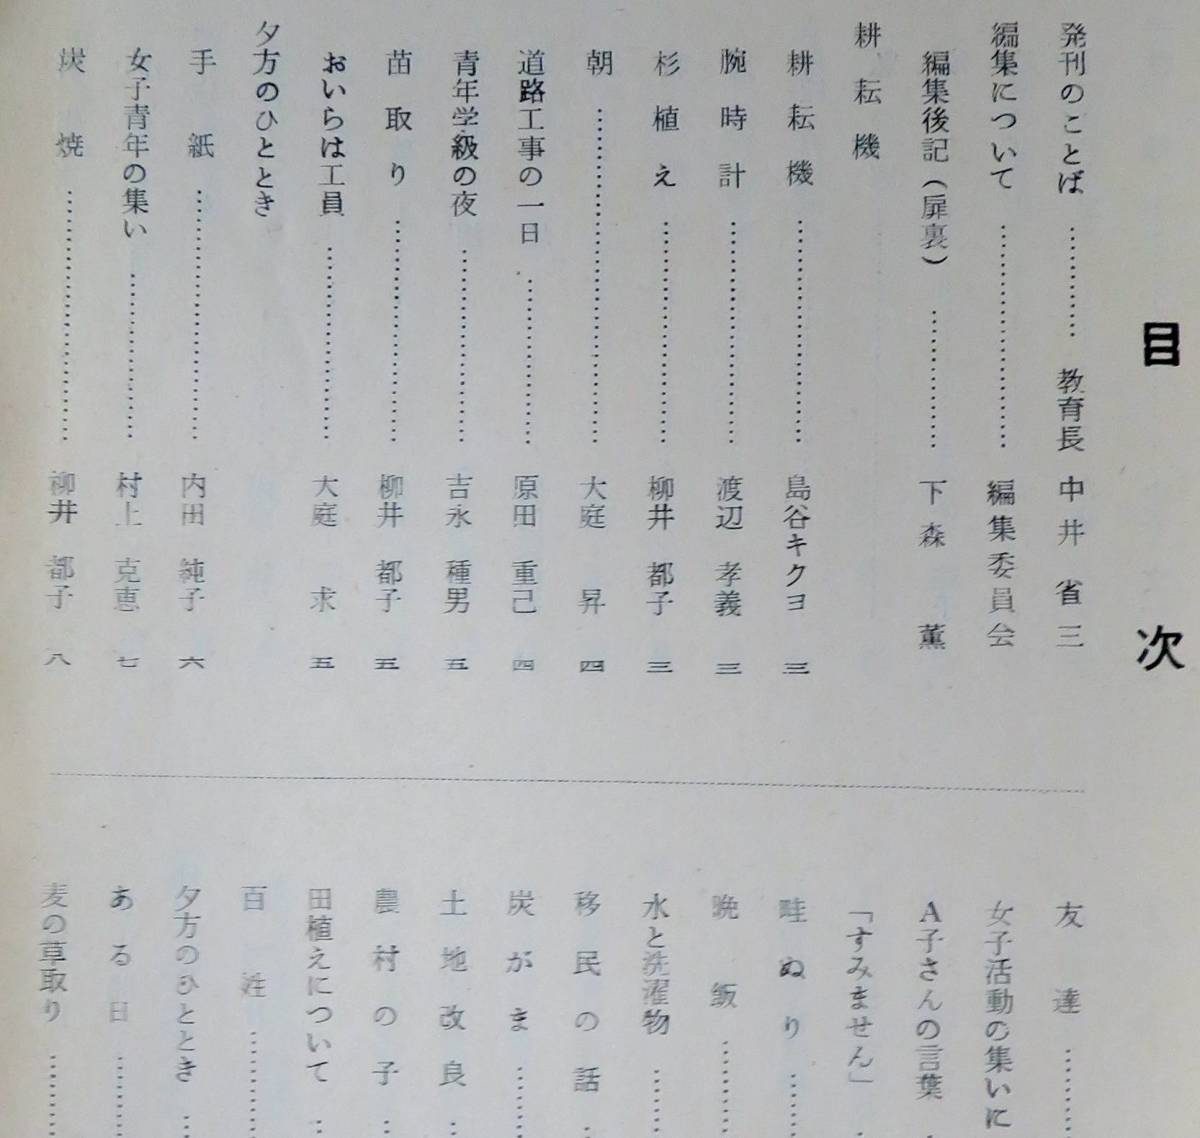 目次
発刊のことば ………… 教育長 中井省三
編集について …………………… 編集委員会
編集後記（扉裏） …………… 下森 薫
耕耘機
耕耘機 …………………… 島谷キクヨ 三
腕時計 …………………… 渡辺 孝義 三
杉植え …………………… 柳井 都子 三
朝 ……………………………… 大庭 昇 四
道路工事の一日 ……………… 原田 重己 四
青年学級の夜 ………………… 吉永 種男 五
苗取り …………………… 柳井 都子 五
おいらは工員 ………………… 大庭 求 五
夕方のひととき
手紙 ……………………… 内田 純子 六
女子青年の集い ……………… 村上 克恵 七
炭焼 ……………………… 柳井 都子 八
友達 ………
女子活動の集いに
A子さんの言葉 …
「すみません」 …
畦ぬり ……
晩飯 ………
水と洗濯物 ……
移民の話 …
炭がま ……
土地改良 …
農村の子 …
田植えについて …
百姓 ………
夕方のひととき …
ある日 ……
麦の草取り ……